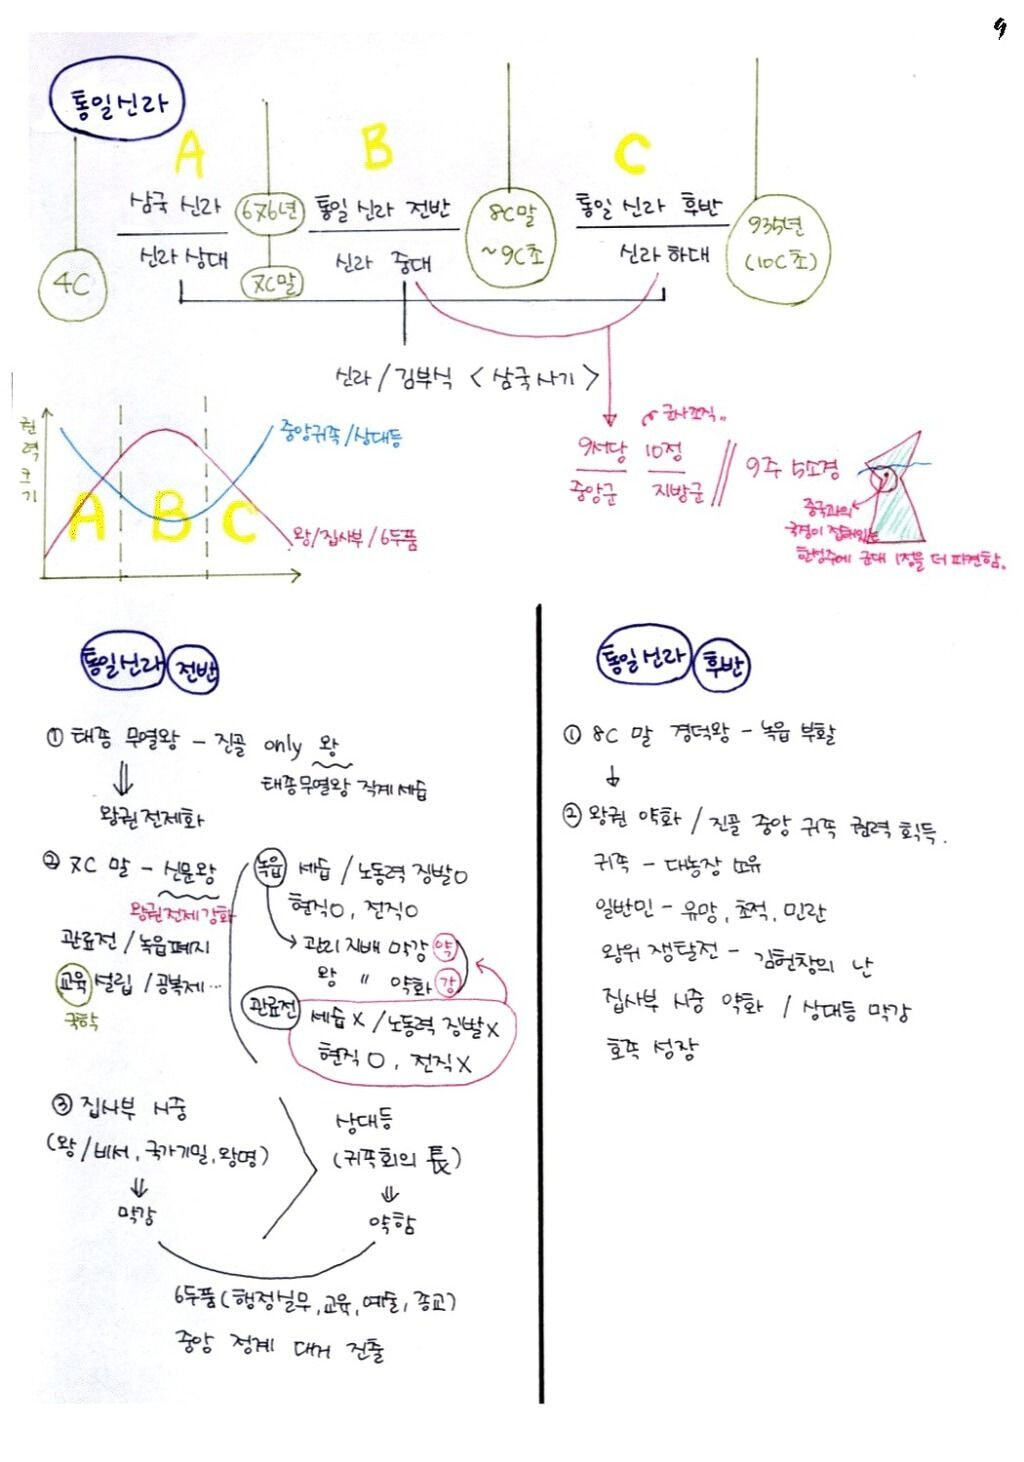 9
통일신라
A B C
삼국 신라 676년 통일 신라 전반 8C말 통일 신라 후반 935년
4C 신라 상대 7C말 신라 중대 ~9C초 신라 하대 (10C초)
신라/김부식 <삼국사기>
권력크기
중앙귀족/상대등
A B C
왕/집사부/6두품
군사조직
9서당 10정 // 9주 5소경
중앙군 지방군
중국과의
국경이 접해있는
한성주에 군대 1정을 더 파견함.
통일신라 전반
① 태종 무열왕 - 진골 only 왕
태종무열왕 직계세습
⇓
왕권전제화
② 7C 말 - 신문왕
왕권전제강화
관료전/녹읍폐지
교육 설립/공복제...
국학
녹읍 세습/노동력 징발O
현직O, 전직O
→ 관리 지배 막강 약
왕 〃 약화 강
관료전 세습X/노동력 징발X
현직O, 전직X
③ 집사부 시중
(왕/비서, 국가기밀, 왕명)
⇓
막강
상대등
(귀족회의 長)
⇓
약함
6두품(행정실무, 교육, 예술, 종교)
중앙 정계 대거 진출
통일신라 후반
① 8C 말 경덕왕 - 녹읍 부활
↓
② 왕권 약화 / 진골 중앙 귀족 권력 획득.
귀족 - 대농장 소유
일반민 - 유망, 초적, 민란
왕위 쟁탈전 - 김헌창의 난
집사부 시중 약화 / 상대등 막강
호족 성장